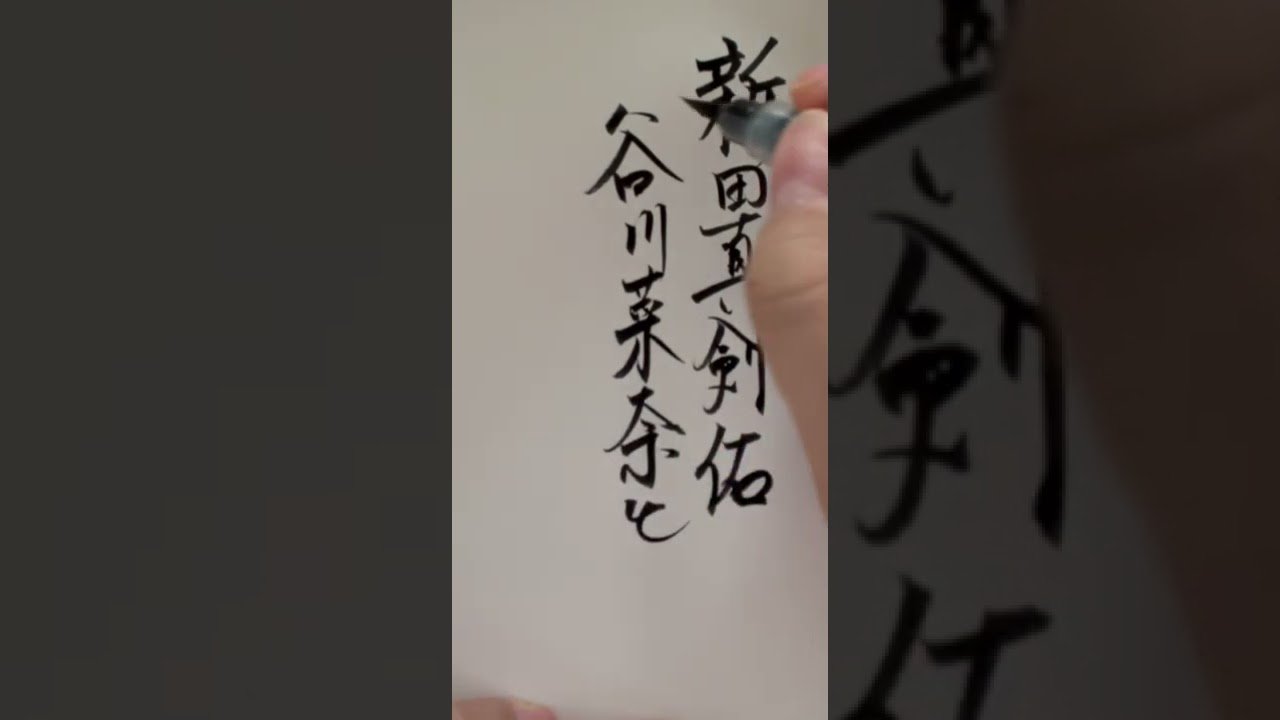 新田真剣佑
谷川菜奈と